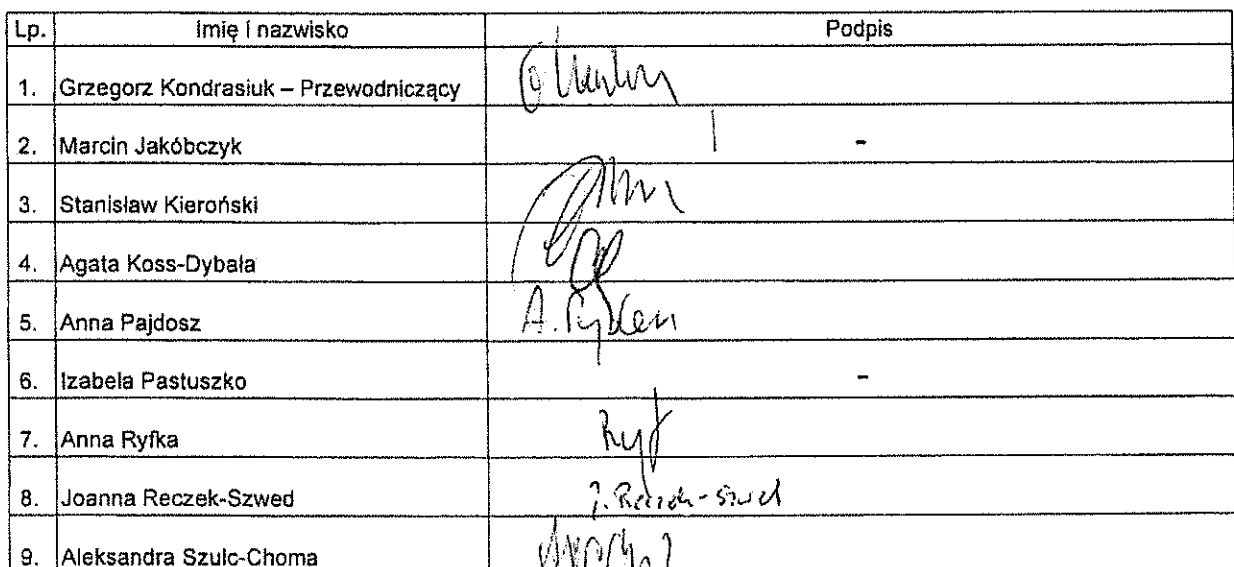 Lp. Imię i nazwisko Podpis
1. Grzegorz Kondrasiuk – Przewodniczący
2. Marcin Jakóbczyk -
3. Stanisław Kieroński
4. Agata Koss-Dybała
5. Anna Pajdosz A.
6. Izabela Pastuszko -
7. Anna Ryfka Ryf
8. Joanna Reczek-Szwed J. Reczek-Szwed
9. Aleksandra Szulc-Choma